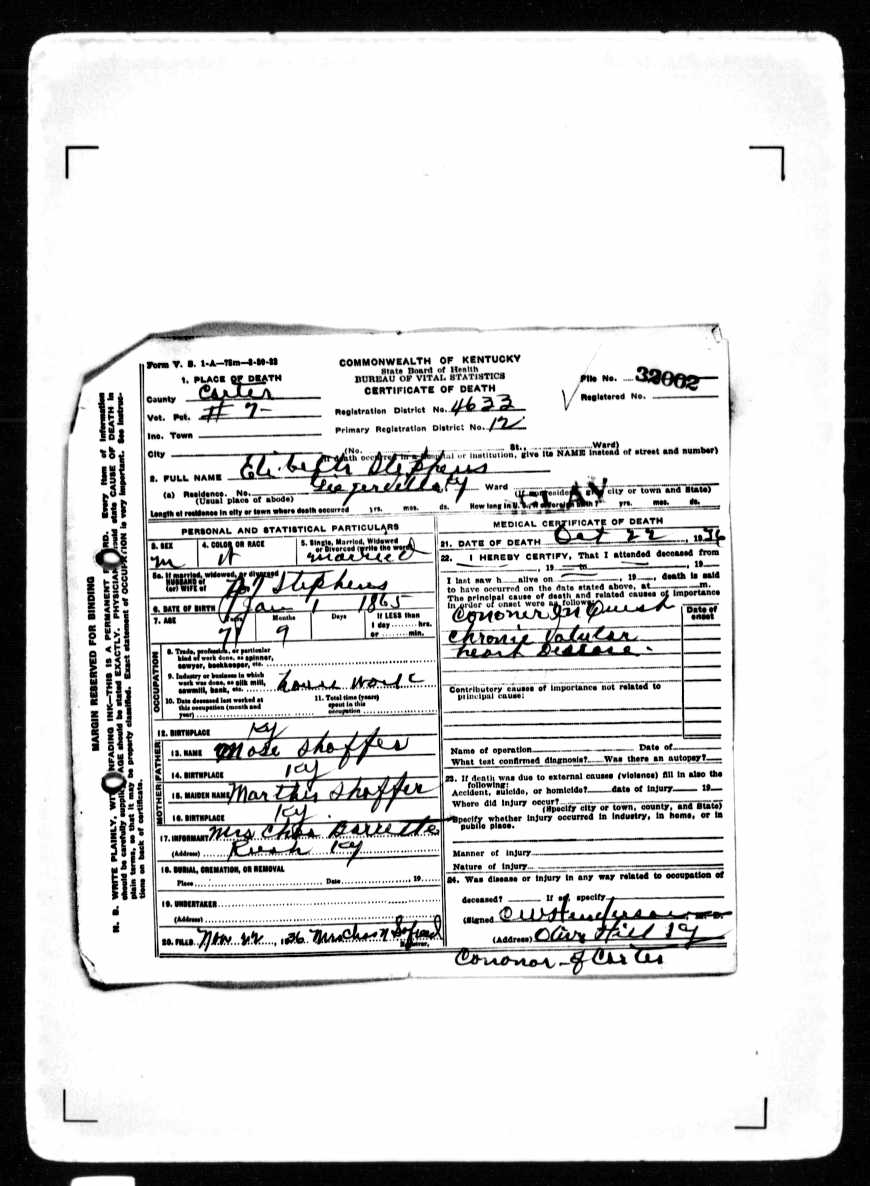 Form V. S. 1-A—75m—8-30-32
COMMONWEALTH OF KENTUCKY
State Board of Health
BUREAU OF VITAL STATISTICS
CERTIFICATE OF DEATH
File No. 32002
Registered No.
1. PLACE OF DEATH
County Carter
Vot. Pct. # 7-
Inc. Town
City
Registration District No. 4633
Primary Registration District No. 12
(No. St., Ward)
(If death occurred in a hospital or institution, give its NAME instead of street and number)
2. FULL NAME Elizibeth Stephens
(a) Residence. No. Geigerville Ky Ward
(Usual place of abode) (If nonresident give city or town and State)
CLAY
Length of residence in city or town where death occurred yrs. mos. ds. How long in U. S., if of foreign birth? yrs. mos. ds.
PERSONAL AND STATISTICAL PARTICULARS
3. SEX
4. COLOR OR RACE
5. Single, Married, Widowed
or Divorced (write the word)
m W married
5a. If married, widowed, or divorced
HUSBAND of
(or) WIFE of Stephens
6. DATE OF BIRTH Jan 1 1865
7. AGE Years Months Days If LESS than
1 day hrs.
or min.
71 9
OCCUPATION
8. Trade, profession, or particular
kind of work done, as spinner,
sawyer, bookkeeper, etc.
9. Industry or business in which
work was done, as silk mill,
sawmill, bank, etc. house work
10. Date deceased last worked at
this occupation (month and
year)
11. Total time (years)
spent in this
occupation
12. BIRTHPLACE Ky
FATHER
13. NAME Mose Shoffer
14. BIRTHPLACE Ky
MOTHER
15. MAIDEN NAME Marthis Shoffer
16. BIRTHPLACE Ky.
17. INFORMANT Mrs Chas Barrette
(Address) Rush Ky
18. BURIAL, CREMATION, OR REMOVAL
Place Date 19
19. UNDERTAKER
(Address)
20. FILED Nov 22, 1936 Mrs Chas N
Registrar.
MEDICAL CERTIFICATE OF DEATH
21. DATE OF DEATH Oct 22, 1936
22. I HEREBY CERTIFY, That I attended deceased from
, 19 to , 19
I last saw h alive on , 19 , death is said
to have occurred on the date stated above, at m.
The principal cause of death and related causes of importance
in order of onset were as follows:
Date of
onset
Cononer In Quest
Chronic Valular
heart Disease.
Contributory causes of importance not related to
principal cause:
Name of operation Date of
What test confirmed diagnosis? Was there an autopsy?
23. If death was due to external causes (violence) fill in also the
following:
Accident, suicide, or homicide? date of injury 19
Where did injury occur?
(Specify city or town, county, and State)
Specify whether injury occurred in industry, in home, or in
public place.
Manner of injury
Nature of injury
24. Was disease or injury in any way related to occupation of
deceased? If so, specify
(Signed C W Henderson
(Address) Olive Hill Ky
Cononor - of Carter
MARGIN RESERVED FOR BINDING
N. B. WRITE PLAINLY, WITH UNFADING INK—THIS IS A PERMANENT RECORD. Every item of information
should be carefully supplied. AGE should be stated EXACTLY. PHYSICIANS should state CAUSE OF DEATH in
plain terms, so that it may be properly classified. Exact statement of OCCUPATION is very important. See instruc-
tions on back of certificate.